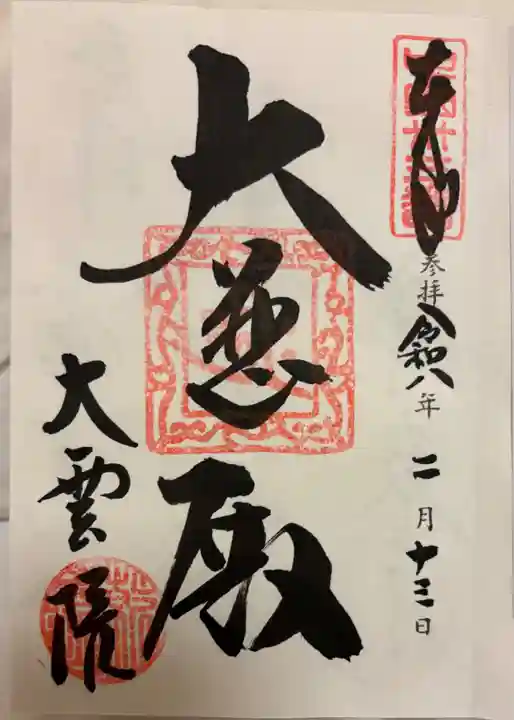 奉拝
参拝 令和八年 二月十三日
大悲殿
大雲院